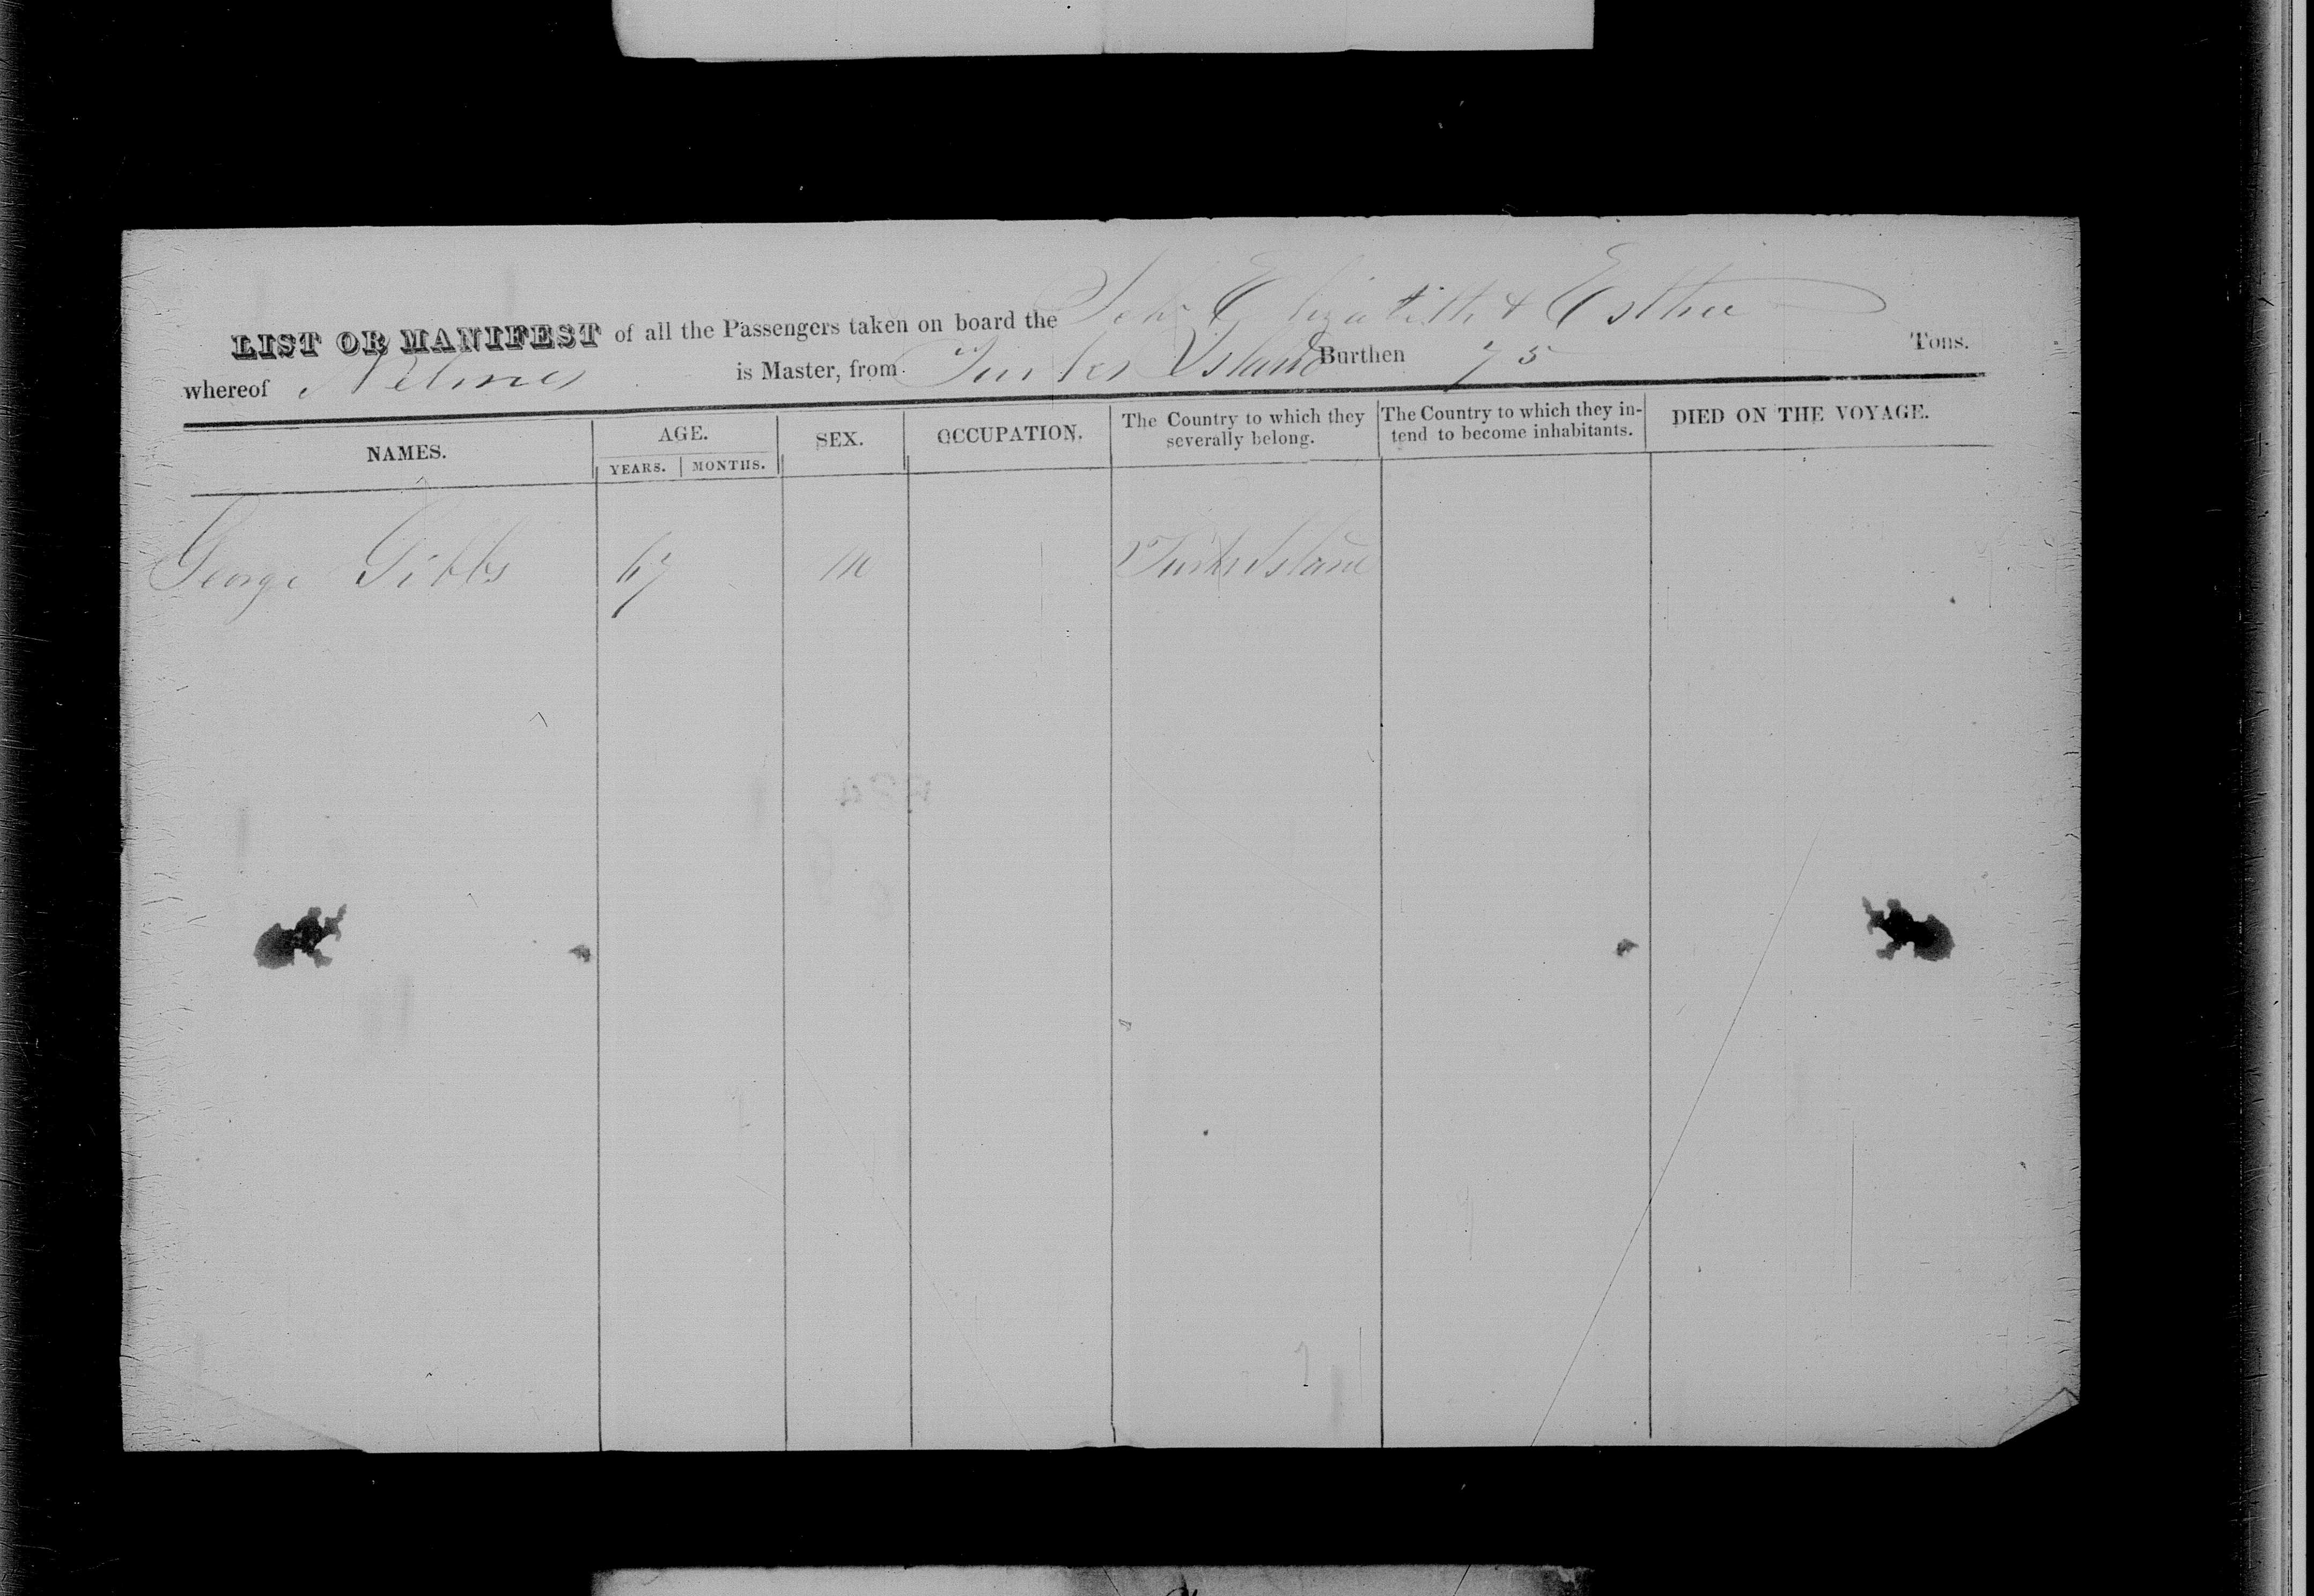 LIST OR MANIFEST of all the Passengers taken on board the Schr Elizabeth & Esther
whereof Nelmes is Master, from Turks Island Burthen 75 Tons.
NAMES. AGE. YEARS. MONTHS. SEX. OCCUPATION. The Country to which they severally belong. The Country to which they intend to become inhabitants. DIED ON THE VOYAGE.
George Gibbs 67 M Turks Island